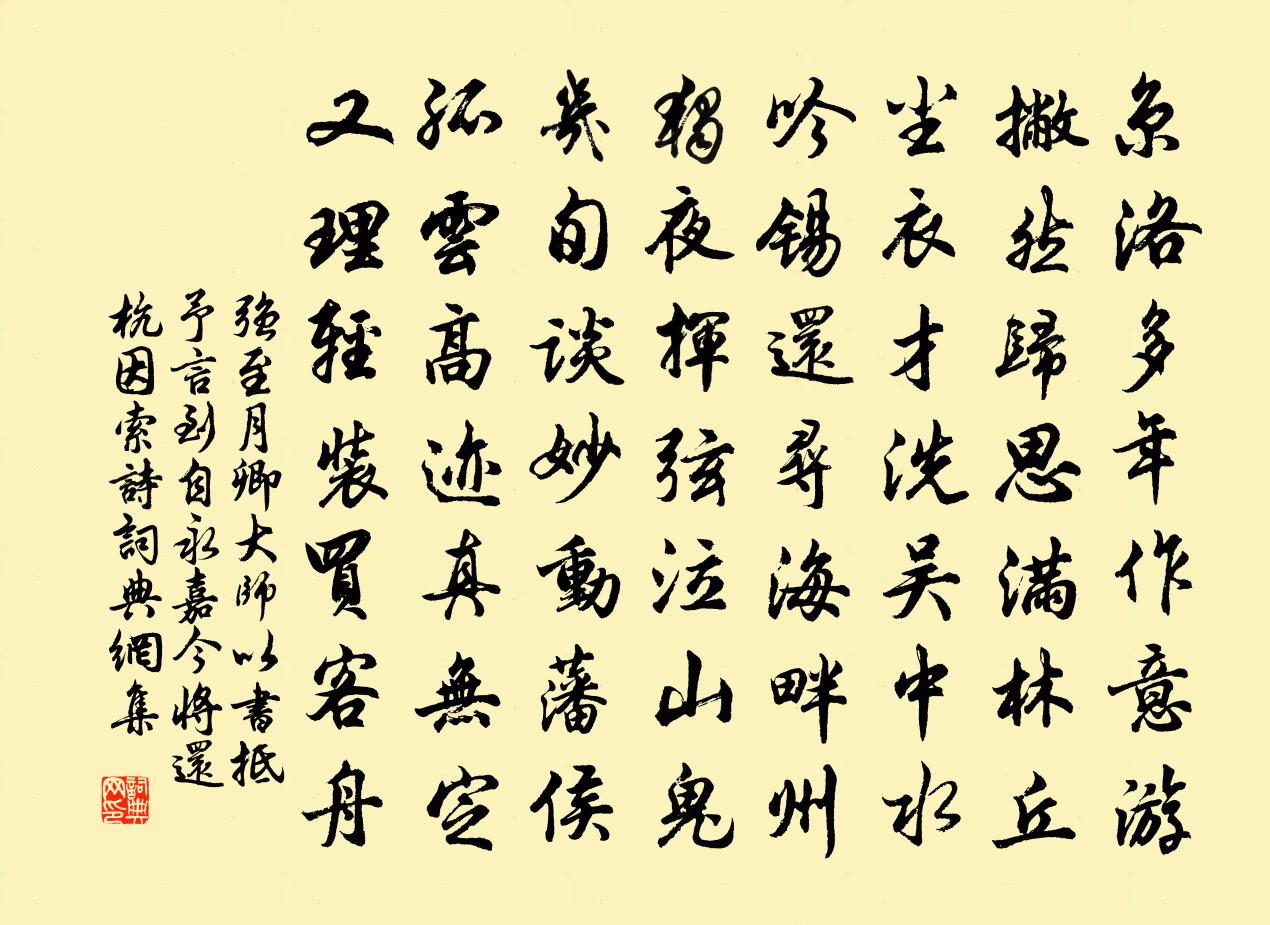 京洛多年作意游
撇然歸思滿林丘
坐衣才洗吴中水
吟锡還尋海畔州
獨夜揮弦泣山鬼
幾旬談妙動藩侯
孤雲高迹真無定
又理輕裝買客舟
強至月卿大師以書抵
予言到自永嘉今將還
杭因索詩詞典網集
詞典網印